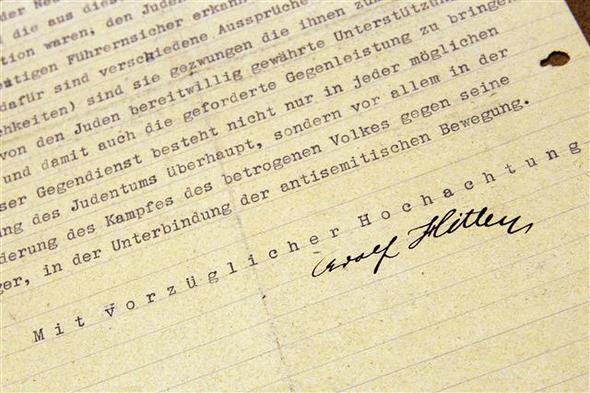 der
die aus dies
tion waren, den Juden
utigen Führernsicher erkan
dafür sind verschiedene Aussprüche
chkeiten) sind sie gezwungen die ihnen zu
von den Juden bereitwillig gewährte Unterstützun
und damit auch die geforderte Gegenleistung zu bringen
ser Gegendienst besteht nicht nur in jeder möglichen
ung des Judentums überhaupt, sondern vor allem in der
derung des Kampfes des betrogenen Volkes gegen seine
ger, in der Unterbindung der antisemitischen Bewegung.
Mit vorzüglicher Hochachtung
Adolf Hitler